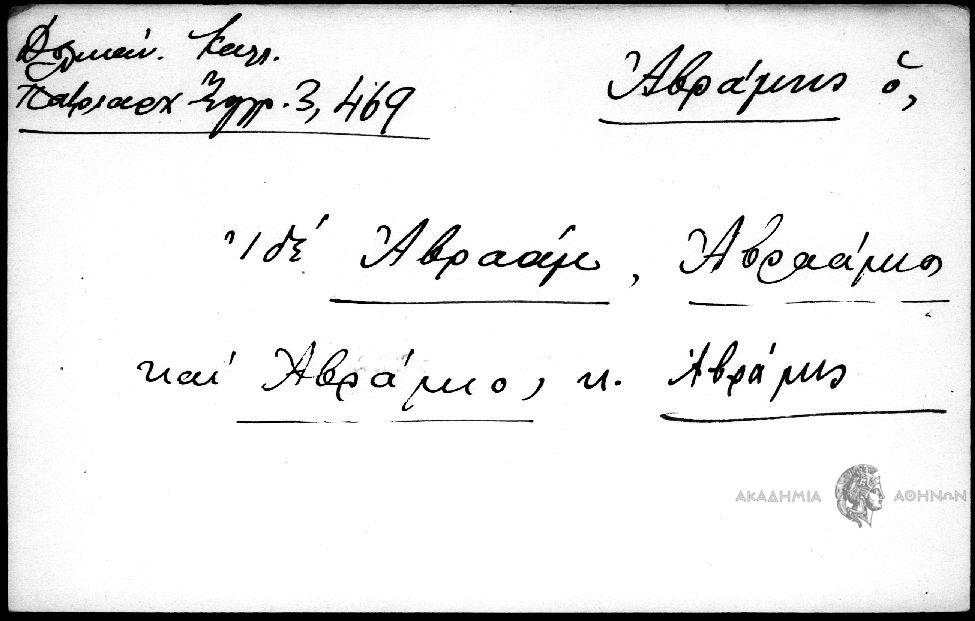 Δελικάν. Κατ.
Πατριαρχ Ἔγγρ. 3, 469
Ἀβράμης ὁ,
Ἰδέ Ἀβραάμ, Ἀβραάμιος
καί Ἀβράμιος κ. Ἀβράμις
ΑΚΑΔΗΜΙΑ ΑΘΗΝΩΝ